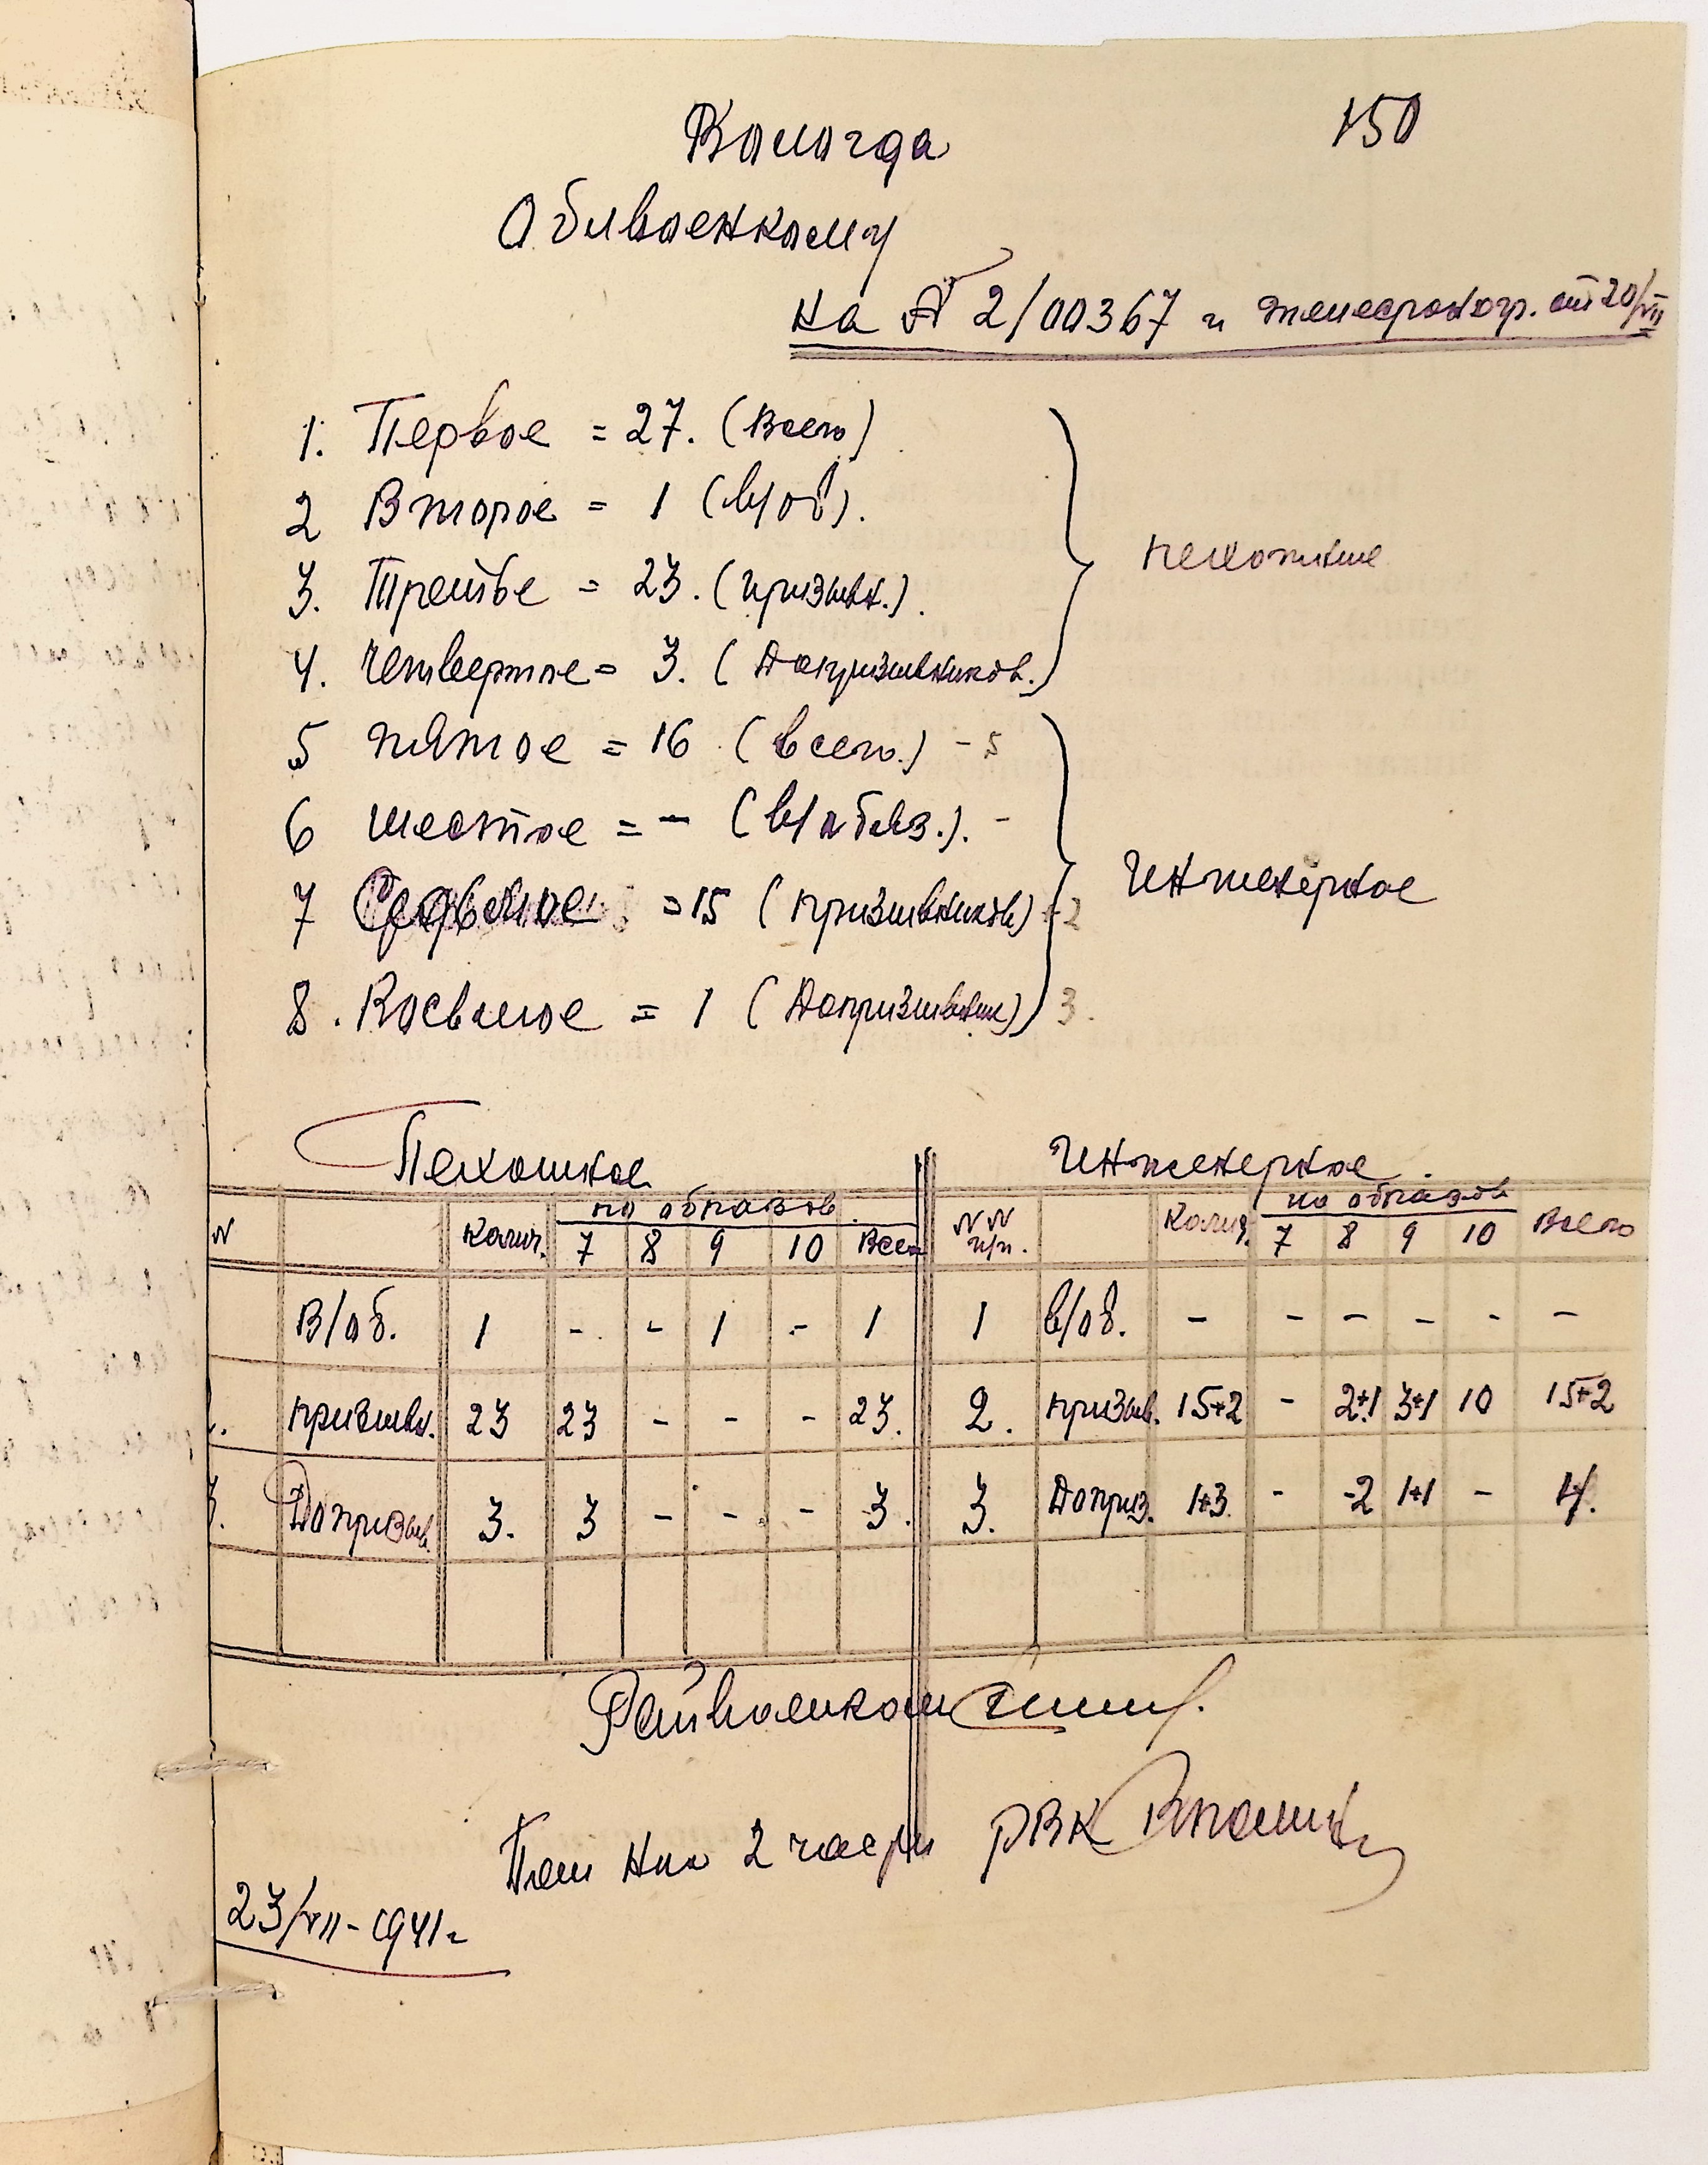 150
Вологда
Облвоенкому
на № 2/00367 и телефоногр. от 20/VII
1. Первое = 27. (всего)
2 Второе = 1 (в/об).
3. Третье = 23. (призывн.).
4. Четвертое = 3. (Допризывников.)
пехотные
5 пятое = 16 (всего.) - 5
6 шестое = - (в/обяз.). -
7 Седьмое = 15 (призывников) +2
8. Восьмое = 1 (Допризывник) 3.
Инженерное
Пехотное Инженерное.
N Колич. по образов. 7 8 9 10 Всего N N п/п. Колич. по образов 7 8 9 10 Всего
В/об. 1 - - 1 - 1 1 в/об. - - - - - -
2. призывн. 23 23 - - - 23. 2. призыв. 15+2 - 2+1 3+1 10 15+2
3. Допризыв. 3. 3 - - - 3. 3. Доприз. 1+3 - -2 1+1 - 4.
Райвоенком
Пом Нач 2 части РВК
23/VII-1941г